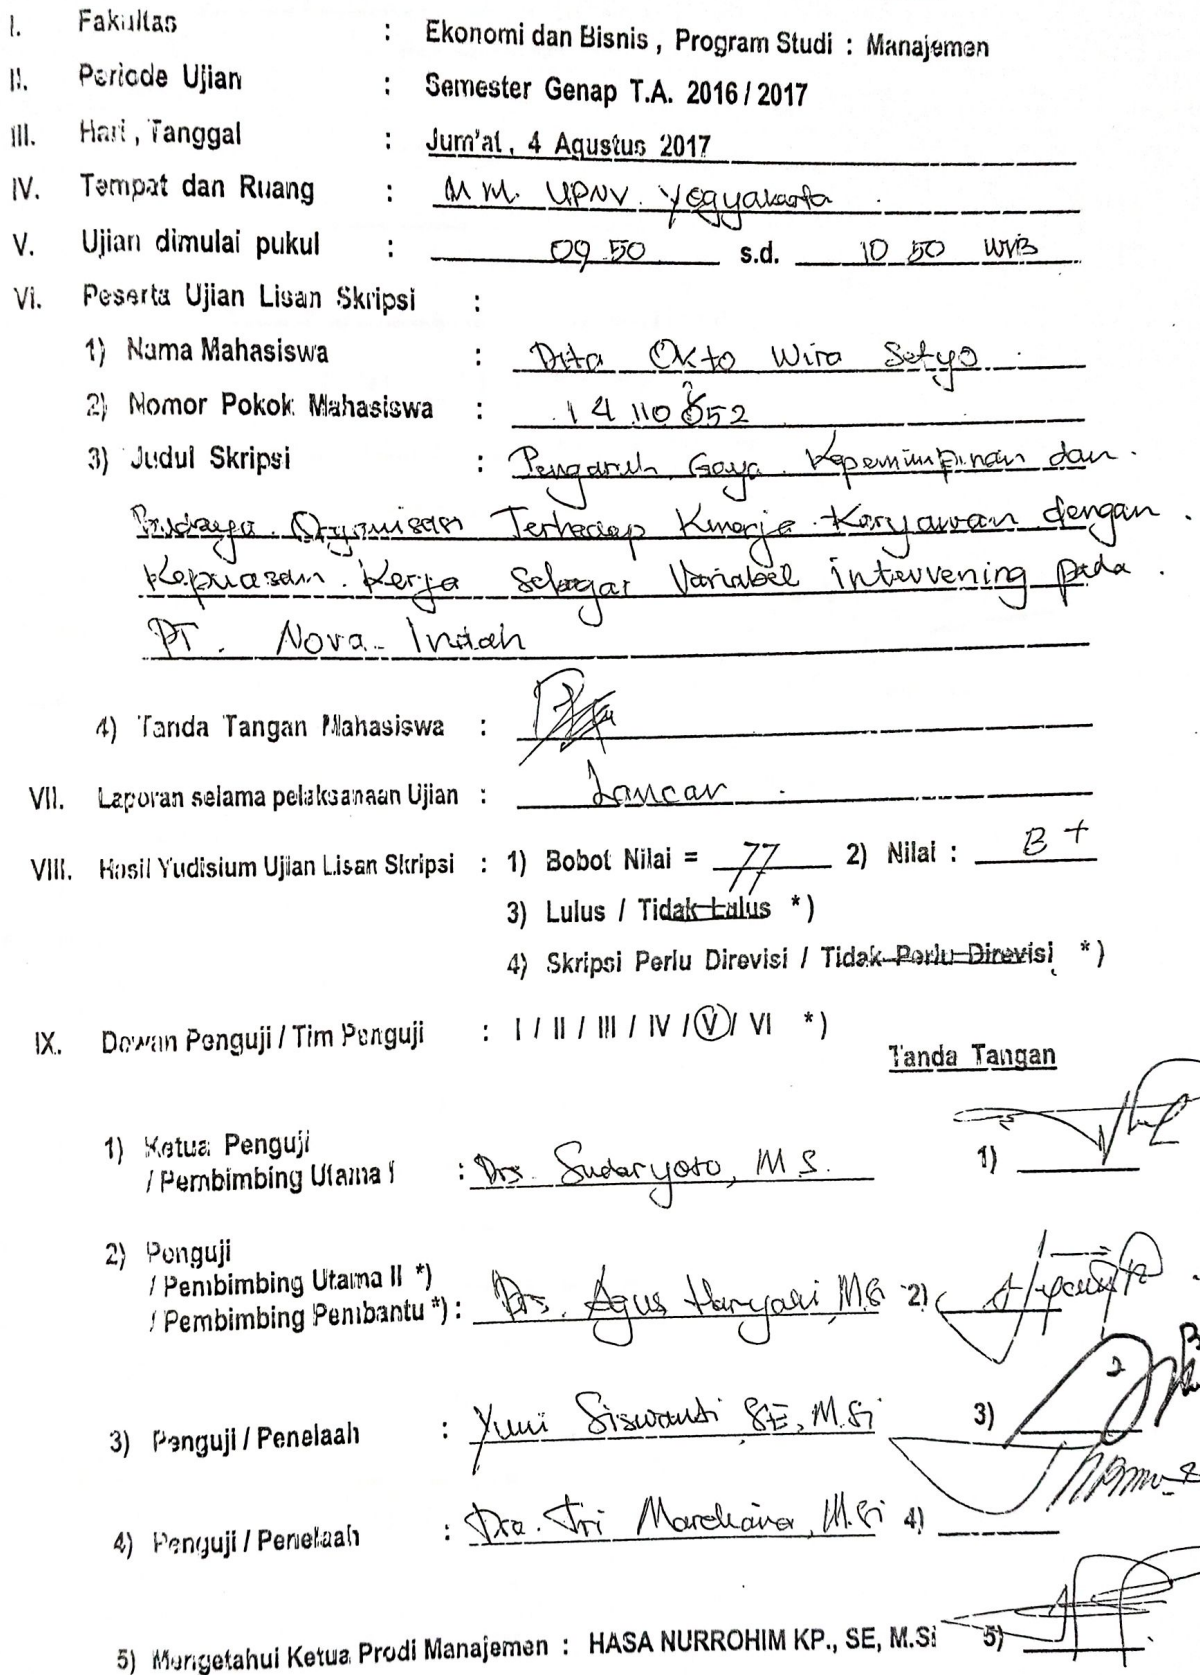 I. Fakultas : Ekonomi dan Bisnis , Program Studi : Manajemen
II. Periode Ujian : Semester Genap T.A. 2016 / 2017
III. Hari , Tanggal : Jum'at , 4 Agustus 2017
IV. Tempat dan Ruang : M M. UPNV. Yogyakarta
V. Ujian dimulai pukul : 09.50 s.d. 10 50 WIB
VI. Peserta Ujian Lisan Skripsi :
1) Nama Mahasiswa : Dita Okto Wira Setyo
2) Nomor Pokok Mahasiswa : 14 110 052
3) Judul Skripsi : Pengaruh Gaya Kepemimpinan dan
Budaya Organisasi Terhadap Kinerja Karyawan dengan
Kepuasan Kerja Sebagai Variabel intervening pada
PT. Nova Indah
4) Tanda Tangan Mahasiswa :
VII. Laporan selama pelaksanaan Ujian : Lancar
VIII. Hasil Yudisium Ujian Lisan Skripsi : 1) Bobot Nilai = 77 2) Nilai : B +
3) Lulus / Tidak Lulus *)
4) Skripsi Perlu Direvisi / Tidak Perlu Direvisi *)
IX. Dewan Penguji / Tim Penguji : I / II / III / IV / V / VI *)
Tanda Tangan
1) Ketua Penguji
/ Pembimbing Utama I : Drs. Sudaryoto, M S. 1)
2) Penguji
/ Pembimbing Utama II *)
/ Pembimbing Pembantu *) : Drs. Agus Haryadi M.Si 2)
3) Penguji / Penelaah : Yuni Siswanti SE, M.Si 3)
4) Penguji / Penelaah : Dra. Tri Mardiana, M.Si 4)
5) Mengetahui Ketua Prodi Manajemen : HASA NURROHIM KP., SE, M.Si 5)